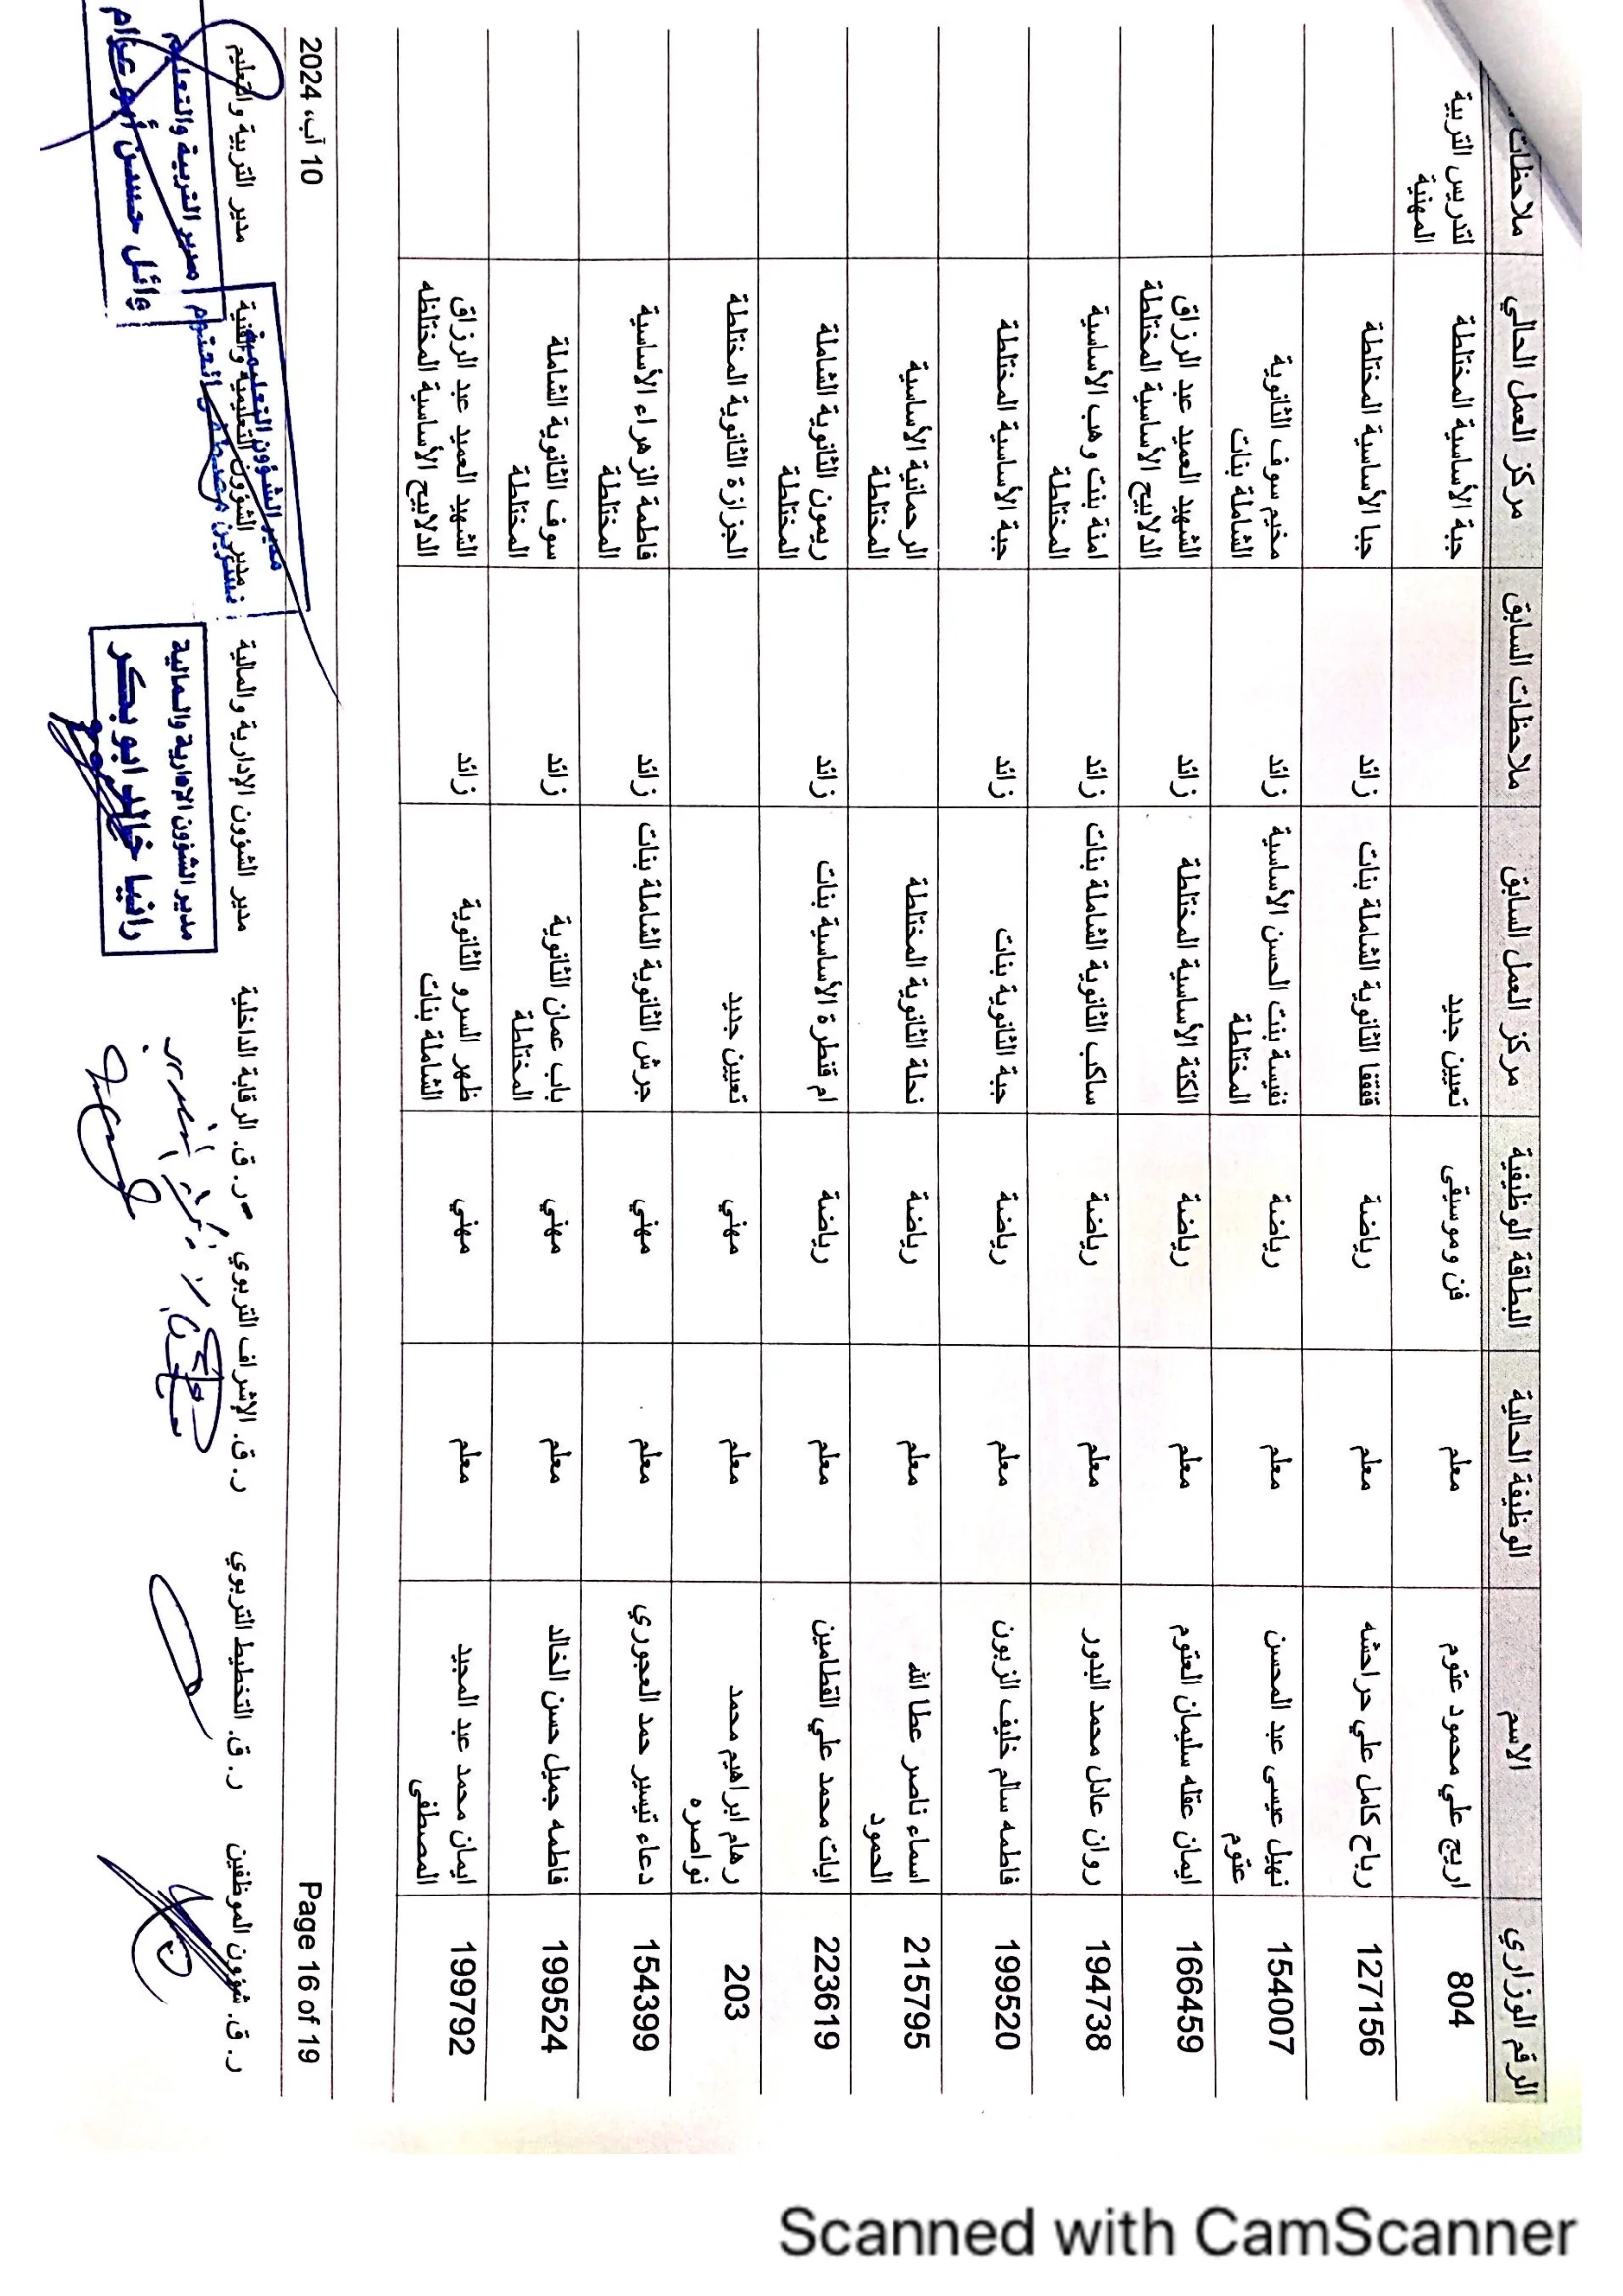 الرقم الوزاري الاسم الوظيفة الحالية البطاقة الوظيفية مركز العمل السابق ملاحظات السابق مركز العمل الحالي ملاحظات
804 اريج علي محمود عتوم معلم فن وموسيقى تعيين جديد جبة الأساسية المختلطة لتدريس التربية
المهنية
127156 رباح كامل علي حراحشه معلم رياضة قفقفا الثانوية الشاملة بنات زائد جبا الأساسية المختلطة
154007 نهيل عيسى عبد المحسن معلم رياضة نفيسة بنت الحسن الأساسية زائد مخيم سوف الثانوية
عتوم المختلطة الشاملة بنات
166459 ايمان عقله سليمان العتوم معلم رياضة الكتة الأساسية المختلطة زائد الشهيد العميد عبد الرزاق
الدلابيح الأساسية المختلطة
194738 روان عادل محمد البدور معلم رياضة ساكب الثانوية الشاملة بنات زائد امنة بنت وهب الأساسية
المختلطة
199520 فاطمه سالم خليف الزبون معلم رياضة جبة الثانوية بنات زائد جبة الأساسية المختلطة
215795 اسماء ناصر عطا الله معلم رياضة نحلة الثانوية المختلطة الرحمانية الأساسية
الحمود المختلطة
223619 ايات محمد علي القطامين معلم رياضة ام قنطرة الأساسية بنات زائد ريمون الثانوية الشاملة
المختلطة
203 رهام ابراهيم محمد معلم مهني تعيين جديد الجزازة الثانوية المختلطة
نواصره
154399 دعاء تيسير حمد العجوري معلم مهني جرش الثانوية الشاملة بنات زائد فاطمة الزهراء الأساسية
المختلطة
199524 فاطمه جميل حسن الخالد معلم مهني باب عمان الثانوية زائد سوف الثانوية الشاملة
المختلطة المختلطة
199792 ايمان محمد عبد المجيد معلم مهني ظهر السرو الثانوية زائد الشهيد العميد عبد الرزاق
المصطفى الشاملة بنات الدلابيح الأساسية المختلطه
Page 16 of 19 10 آب، 2024
ر.ق. شؤون الموظفين ر.ق. التخطيط التربوي ر.ق. الإشراف التربوي ر.ق. الرقابة الداخلية مدير الشؤون الإدارية والمالية مدير الشؤون التعليمية والفنية مدير التربية والتعليم
مدير الشؤون التعليمية
نسرين مصطفى العتوم
مدير الشؤون الإدارية والمالية
رانيا خالد ابو بكر
مدير التربية والتعليم
وائل حسن أبو عزام
Scanned with CamScanner